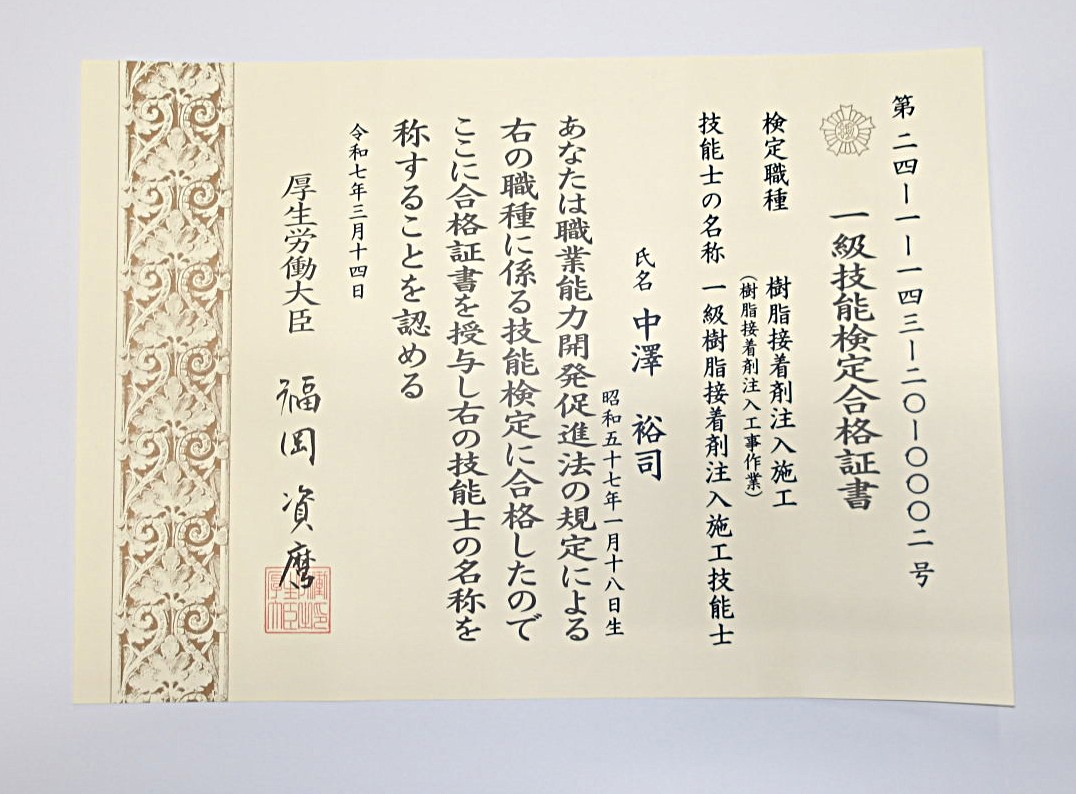 第二四ー一ー一四三ー二〇ー〇〇〇二号
一級技能検定合格証書
検定職種 樹脂接着剤注入施工
(樹脂接着剤注入工事作業)
技能士の名称 一級樹脂接着剤注入施工技能士
氏名 中澤 裕司
昭和五十七年一月十八日生
あなたは職業能力開発促進法の規定による
右の職種に係る技能検定に合格したので
ここに合格証書を授与し右の技能士の名称を
称することを認める
令和七年三月十四日
厚生労働大臣 福岡 資麿